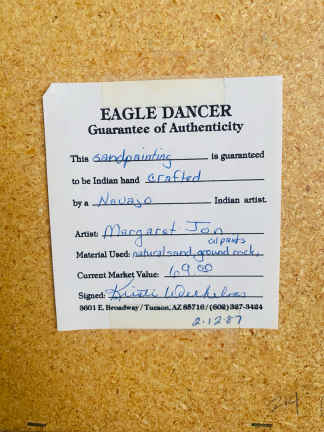 EAGLE DANCER
Guarantee of Authenticity
This sandpainting is guaranteed
to be Indian hand crafted
by a Navajo Indian artist.
Artist: Margaret Jon
oil paints
Material Used: natural sand, ground rock,
Current Market Value: 69 00
Signed: Kristi
3601 E. Broadway / Tucson, AZ 85716 / (602) 327-3424
2-12-87